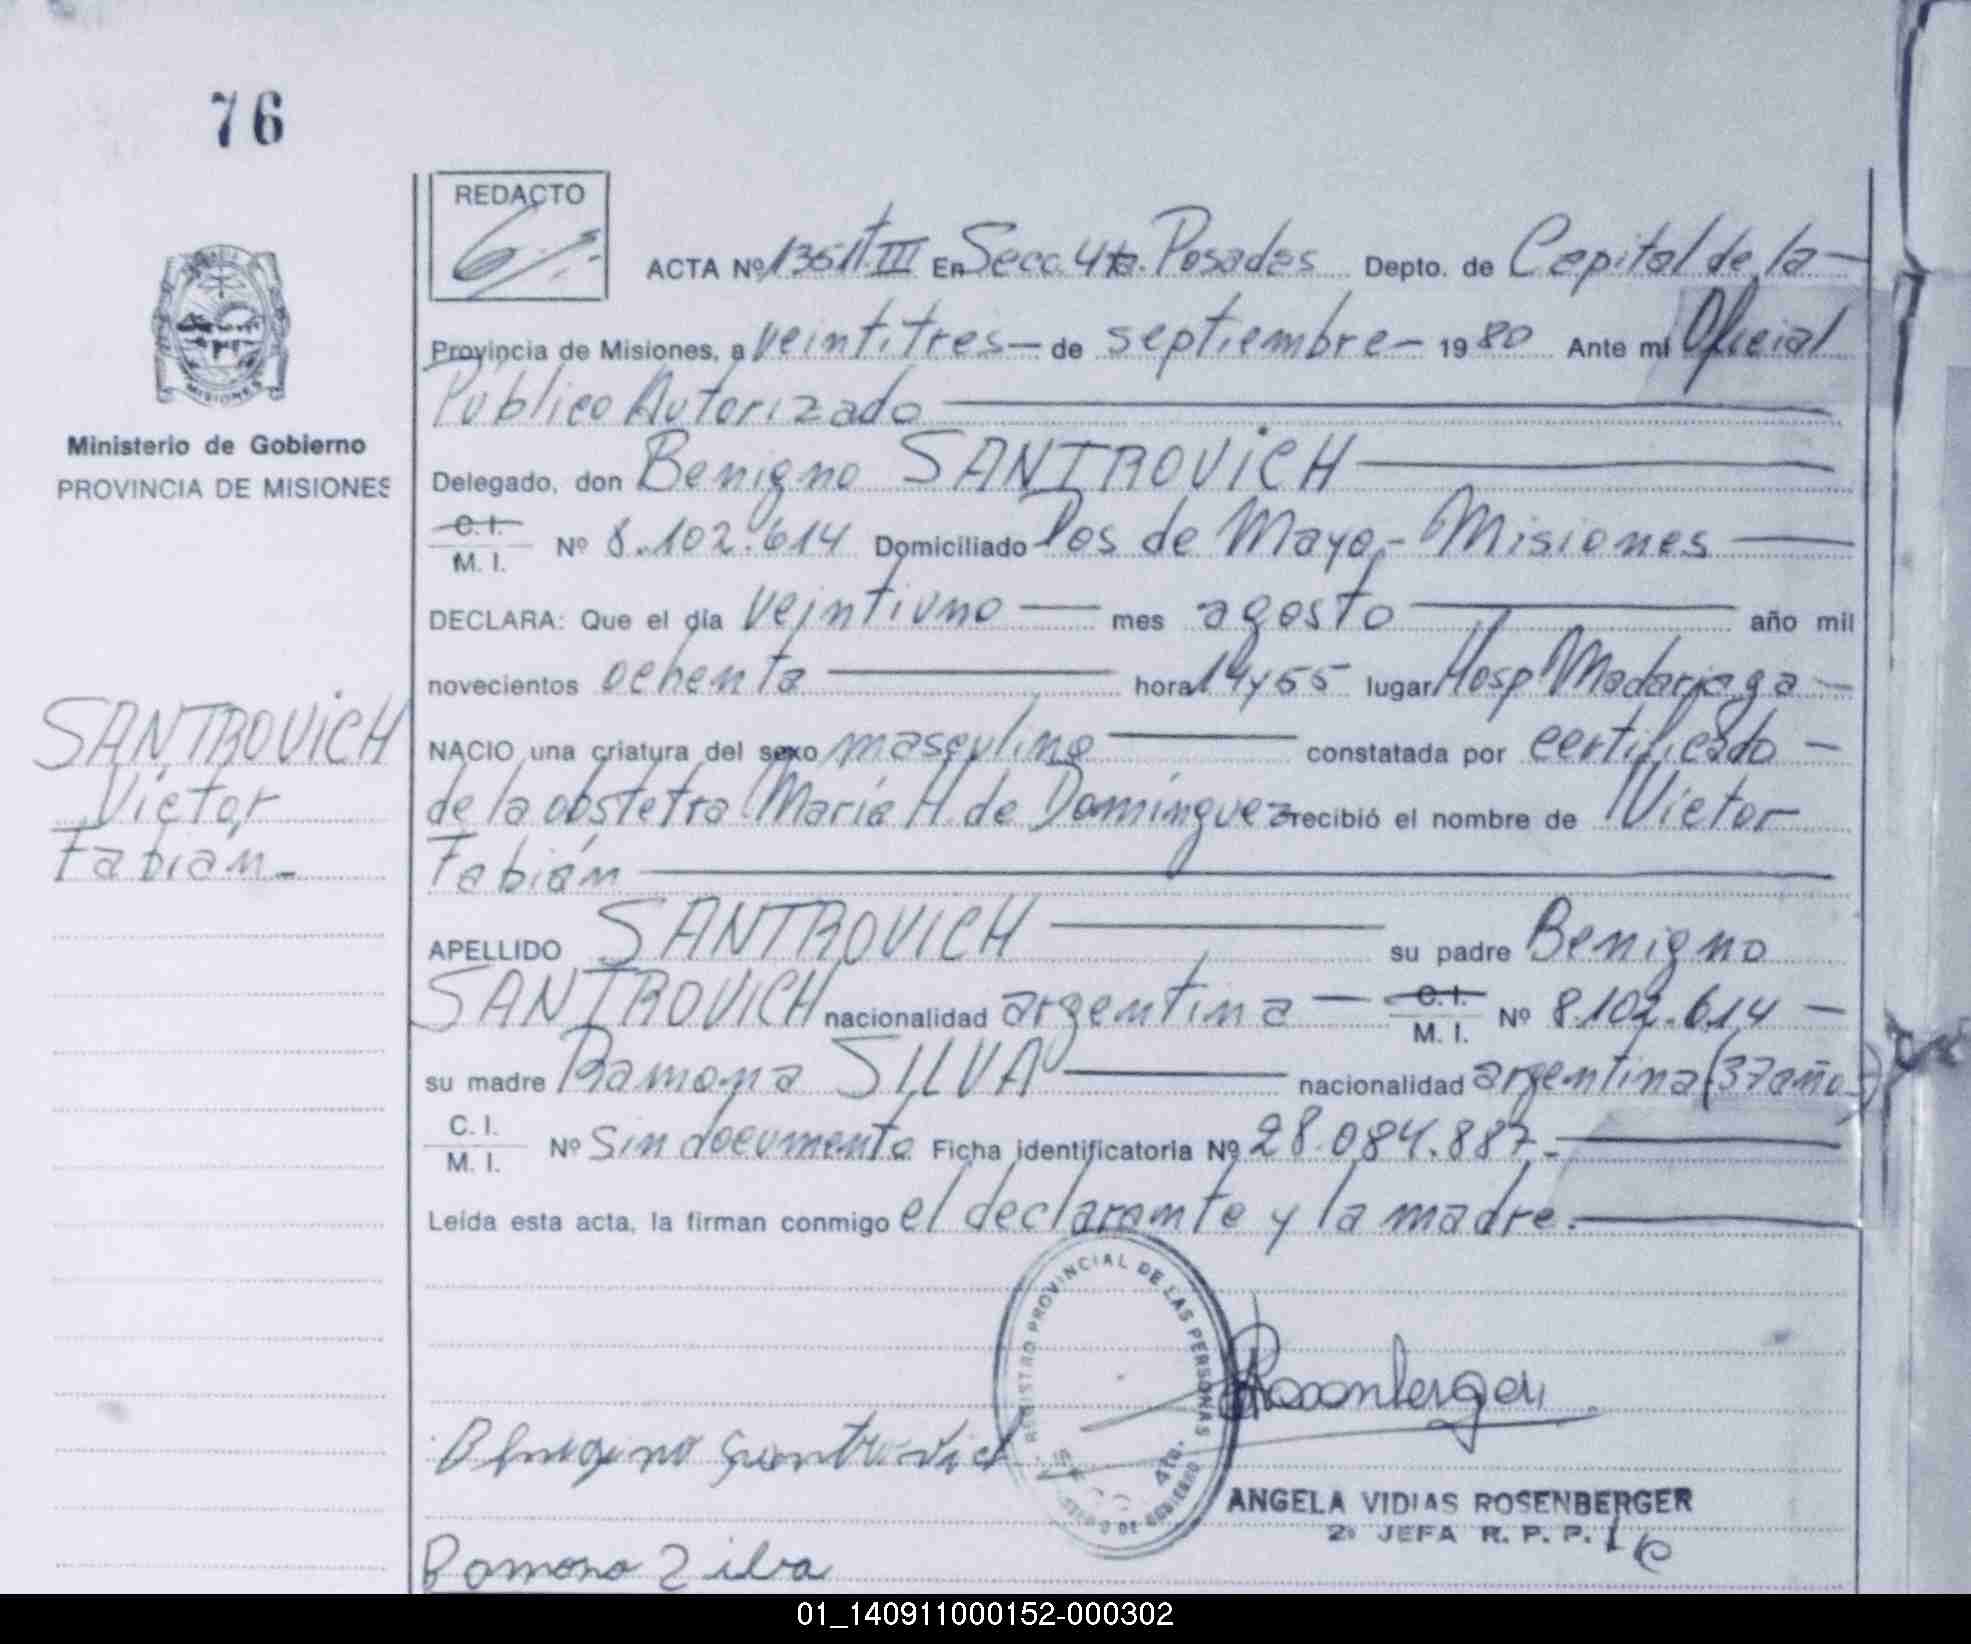 76
REDACTO
ACTA Nº 1351 T III En Secc. 4ta. Posadas Depto. de Capital de la
Provincia de Misiones, a veintitres de septiembre 1980 Ante mi Oficial
Público Autorizado
Ministerio de Gobierno
PROVINCIA DE MISIONES
Delegado, don Benigno SANTROVICH
C. I.
M. I. Nº 8.102.614 Domiciliado Dos de Mayo - Misiones
DECLARA: Que el día veintiuno mes agosto año mil
novecientos ochenta hora 14y55 lugar Hosp Madariaga
NACIO una criatura del sexo masculino constatada por certificado
de la obstetra María H. de Domínguez recibió el nombre de Victor
Fabián
SANTROVICH
Victor
Fabián
APELLIDO SANTROVICH su padre Benigno
SANTROVICH nacionalidad argentina C. I.
M. I. Nº 8.102.614
su madre Ramona SILVA nacionalidad argentina (37 años)
C. I.
M. I. Nº sin documento Ficha identificatoria Nº 28.084.887.-
Leída esta acta, la firman conmigo el declarante y la madre.
REGISTRO PROVINCIAL DE LAS PERSONAS
4ta.
Rosenberger
Santrovich
ANGELA VIDIAS ROSENBERGER
2ª JEFA R. P. P.
Ramona Zilva
MISIONES
01_140911000152-000302